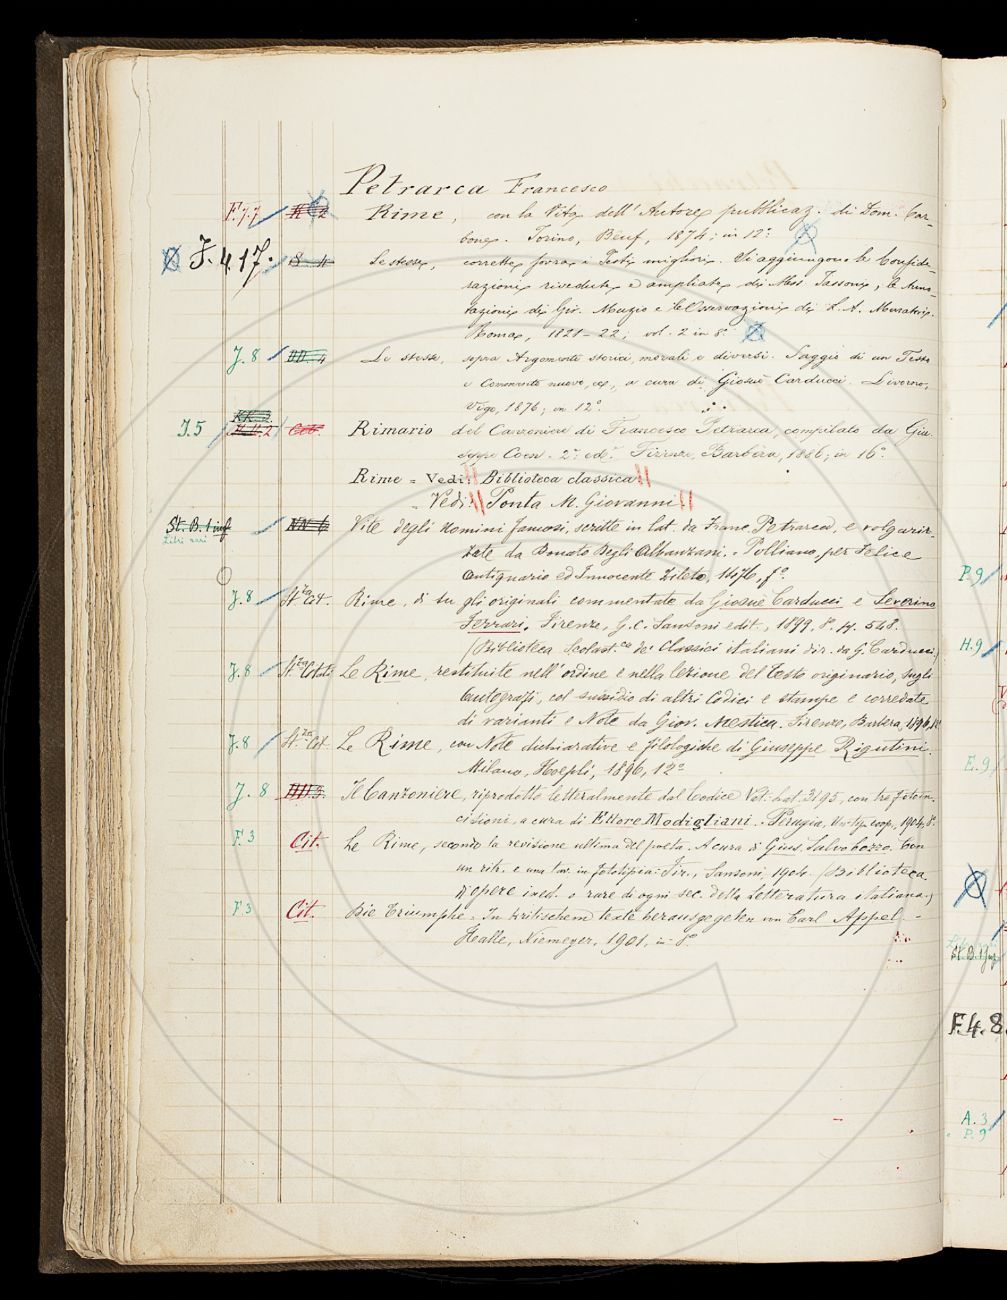 Petrarca Francesco
F.7.7 Rime, con la Vita dell'Autore pubblicaz. di Dom. Car-
bone. Torino, Beuf, 1874; in 12°.
F.4.17. S. 4 Le stesse, corrette sovra i Testi migliori. Vi aggiungono le Conside-
razioni rivedute e ampliate di Aless. Tassoni, le Anno-
tazioni di Gir. Muzio e le Osservazioni di L. A. Muratori.
Roma, 1821-22; vol. 2 in 8°.
J. 8 DD. 4 Le stesse, sopra Argomenti storici, morali e diversi. Saggio di un Testo
e Commento nuovo, a cura di Giosuè Carducci. Livorno,
Vigo, 1876; in 12°.
KK. 2.
J. 5 Cit. Rimario del Canzoniere di Francesco Petrarca, compilato da Giu-
seppe Coen. 2ª ed. Firenze, Barbèra, 1886; in 16°.
Rime = Vedi: Biblioteca classica
= Vedi: Ponta M. Giovanni
St. B. 1 inf NN 6 Vite degli uomini famosi, scritte in lat. da Franc. Petrarca, e volgariz-
Libri rari
zate da Donato Degli Albanzani. Polliano, per Felice
Antiquario ed Innocente Zileto, 1476, f°.
J. 8 St. Cit. Rime, di su gli originali commentate da Giosuè Carducci e Severino
Ferrari. Firenze, G. C. Sansoni edit., 1899. 8°. p. 548.
(Biblioteca Scolast.ca de' Classici italiani dir. da G. Carducci)
J. 8 Le Rime, restituite nell'ordine e nella lezione del testo originario, sugli
autografi, col sussidio di altri Codici e stampe e corredate
di varianti e Note da Giov. Mestica. Firenze, Barbèra, 1896,
J. 8 St. Cit. Le Rime, con Note dichiarative e filologiche di Giuseppe Rigutini.
Milano, Hoepli, 1896, 12°
J. 8 Il Canzoniere, riprodotto letteralmente dal Codice Vat. Lat. 3195, con tre fotoin-
cisioni, a cura di Ettore Modigliani. Perugia, Un. tip. coop., 1904, 8°.
F. 3 Cit. Le Rime, secondo la revisione ultima del poeta. A cura di Gius. Salvo Cozzo. Con
un ritr. e una tav. in fototipia. Fir., Sansoni, 1904. (Biblioteca
di opere ined. o rare di ogni sec. della Letteratura italiana.)
F. 3 Cit. Die Triumphe. In kritischem texte herausgegeben von Carl Appel -
Halle, Niemeyer, 1901, in 8°
P. 9
H. 9
E. 9
F. 4. 8
A. 3
P. 9